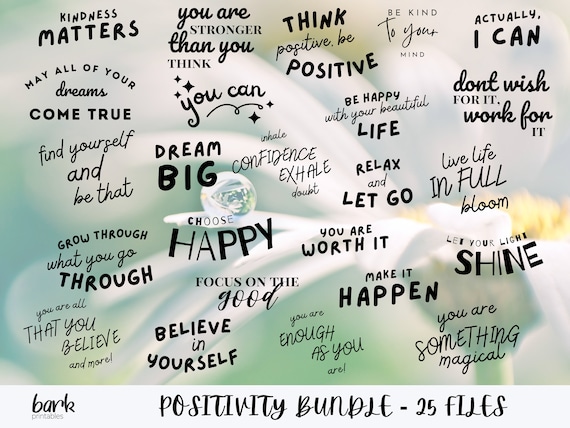 KINDNESS
MATTERS
you are
STRONGER
than you
THINK
THINK
positive, be
POSITIVE
BE KIND
to your
MIND
ACTUALLY,
I CAN
MAY ALL OF YOUR
dreams
COME TRUE
you can
BE HAPPY
with your beautiful
LIFE
dont wish
FOR IT,
work for
IT
find yourself
and
be that
DREAM
BIG
inhale
CONFIDENCE
EXHALE
doubt
RELAX
and
LET GO
live life
IN FULL
bloom
GROW THROUGH
what you go
THROUGH
CHOOSE
HAPPY
YOU ARE
WORTH IT
LET YOUR LIGHT
SHINE
FOCUS ON THE
good
MAKE IT
HAPPEN
you are all
THAT YOU
BELIEVE
and more!
BELIEVE
in
YOURSELF
you are
ENOUGH
AS YOU
are!
you are
SOMETHING
magical
bark
printables
POSITIVITY BUNDLE - 25 FILES